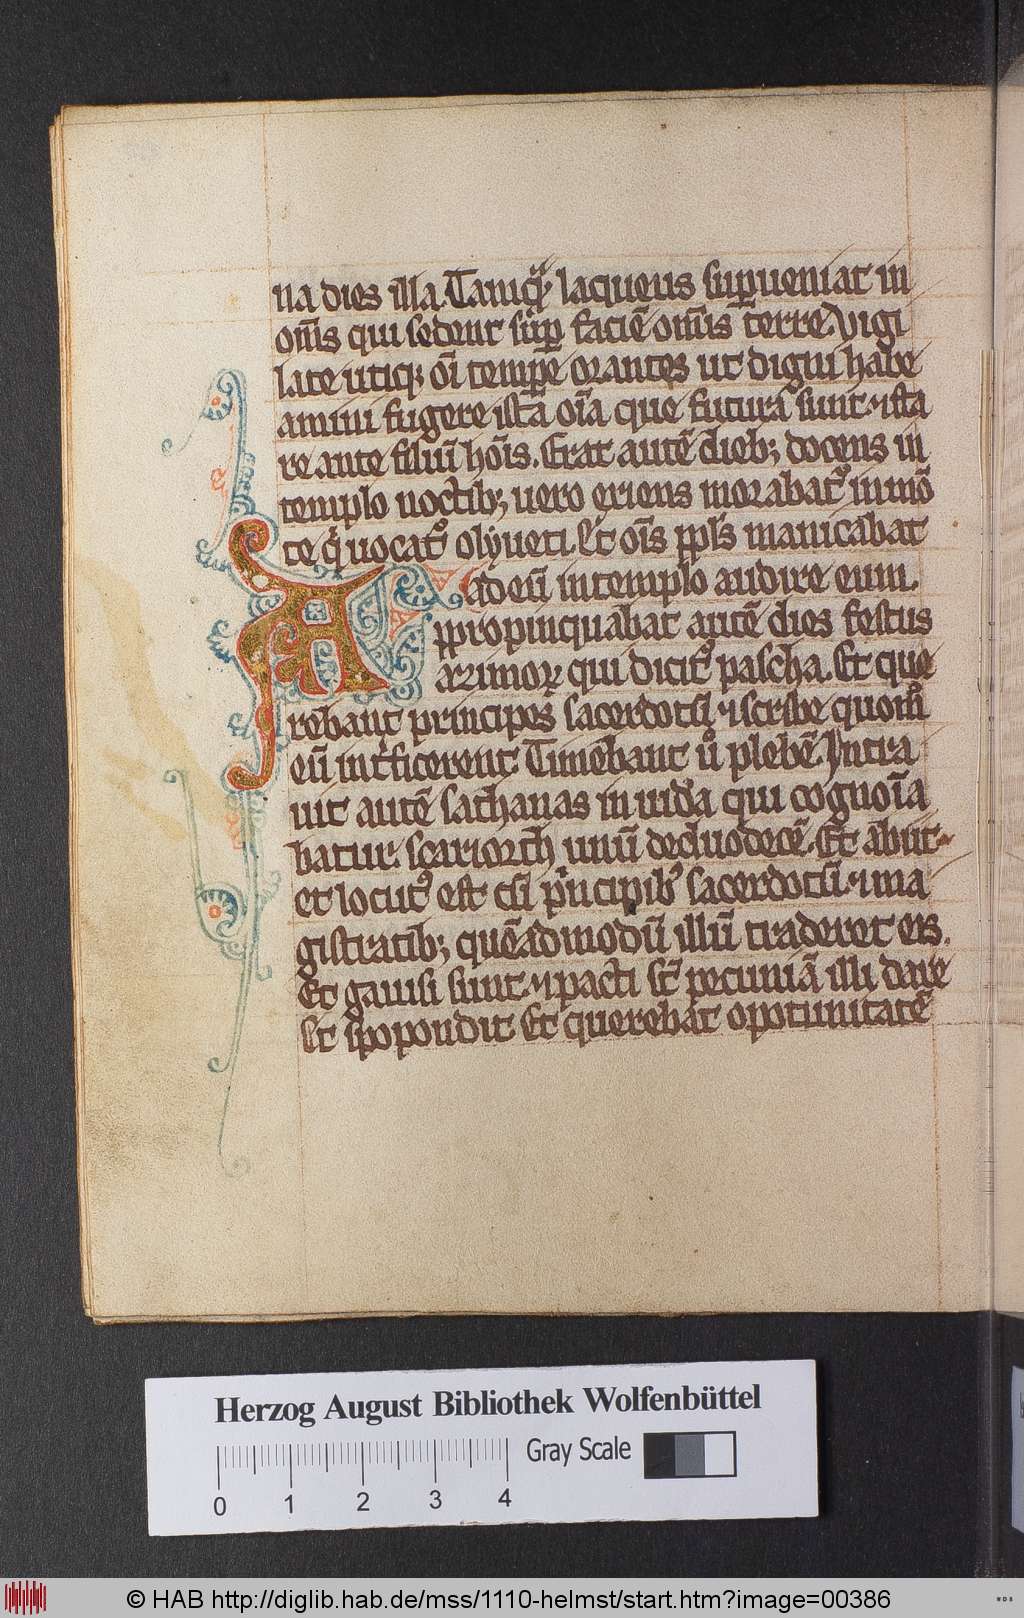 na dies illa. Tamqͣ laqueus suꝑueniat in
om̄s qui sedent suꝑ faciē om̄is terre. Vigi
late utiqꝫ oī tempꝑe orantes ut digni habe
amini fugere ista oīa que futura sunt ⁊ sta
re ante filiū hoīs. Erat autē diebꝫ docens in
templo noctibꝫ uero exiens morabatᷣ in mō
te q̇ uocatᷣ olyueti. Et om̄s ppl̄s manicabat
ad eū in templo audire eum.
A
ppropinquabat autē dies festus
azimoꝝ qui dicitᷣ pascha. Et que
rebant principes sacerdotū ⁊ scribe quom̊
eū int̾ficerent. Timebant ů plebē. Intra
uit autē sathanas in iudā qui cognoīa
batur scarioth unū de duodecē. Et abiit
et locutꝰ est cū pͥncipibꝰ sacerdotū ⁊ ma
gistratibꝫ quēadmodū illū traderet eis.
Et gauisi sunt ⁊ pacti st̄ pecuniā illi dare
Et spopondit Et querebat oportunitatē
Herzog August Bibliothek Wolfenbüttel
Gray Scale
0 1 2 3 4
© HAB http://diglib.hab.de/mss/1110-helmst/start.htm?image=00386